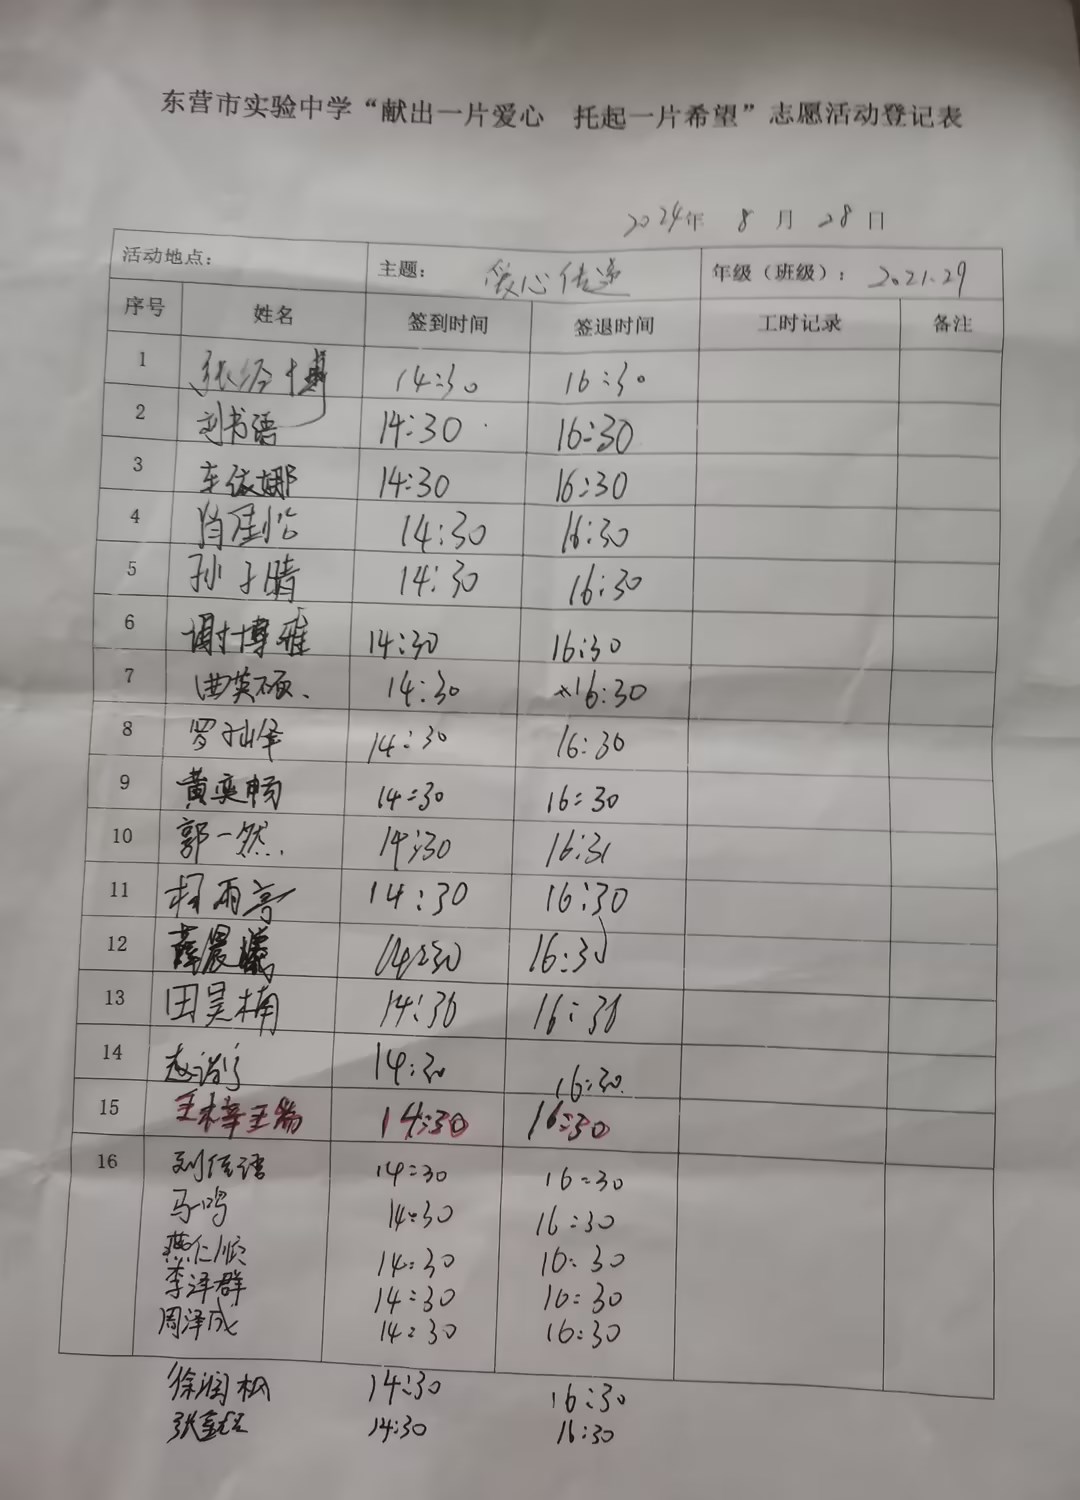 东营市实验中学“献出一片爱心 托起一片希望”志愿活动登记表
2024年 8 月 28 日
活动地点： 主题： 爱心传递 年级（班级）： 2021.29
序号 姓名 签到时间 签退时间 工时记录 备注
1 张 博 14:30 16:30
2 刘书语 14:30 16:30
3 车依娜 14:30 16:30
4 肖 怡 14:30 16:30
5 孙子晴 14:30 16:30
6 谢博雅 14:30 16:30
7 英硕 14:30 16:30
8 罗灿泽 14:30 16:30
9 黄奕畅 14:30 16:30
10 郭一然 14:30 16:31
11 雨亭 14:30 16:30
12 薛晨曦 14:30 16:30
13 田昊楠 14:30 16:30
14 赵 14:30 16:30
15 王梓 14:30 16:30
16 刘佳语 14:30 16:30
马一鸣 14:30 16:30
燕仁顺 14:30 16:30
李泽群 14:30 16:30
周泽成 14:30 16:30
徐润枫 14:30 16:30
张 14:30 16:30